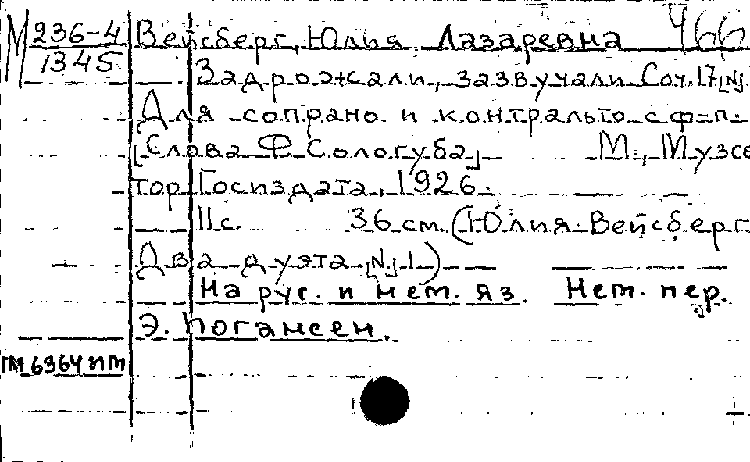 М 236-4 Вейсберг, Юлия Лазаревна 466
1345 Задрожали, зазвучали Соч. 17, [N]
Для сопрано и контральто с ф-п.
[Слова Ф. Сологуба] М., Музсек
тор Госиздата, 1926.
11 с. 36 см. (Юлия Вейсберг
Два дуэта [N] 1)
На рус. и нем. яз. Нем. пер.
Э. Иогансен.
ПМ 6364 ПМ